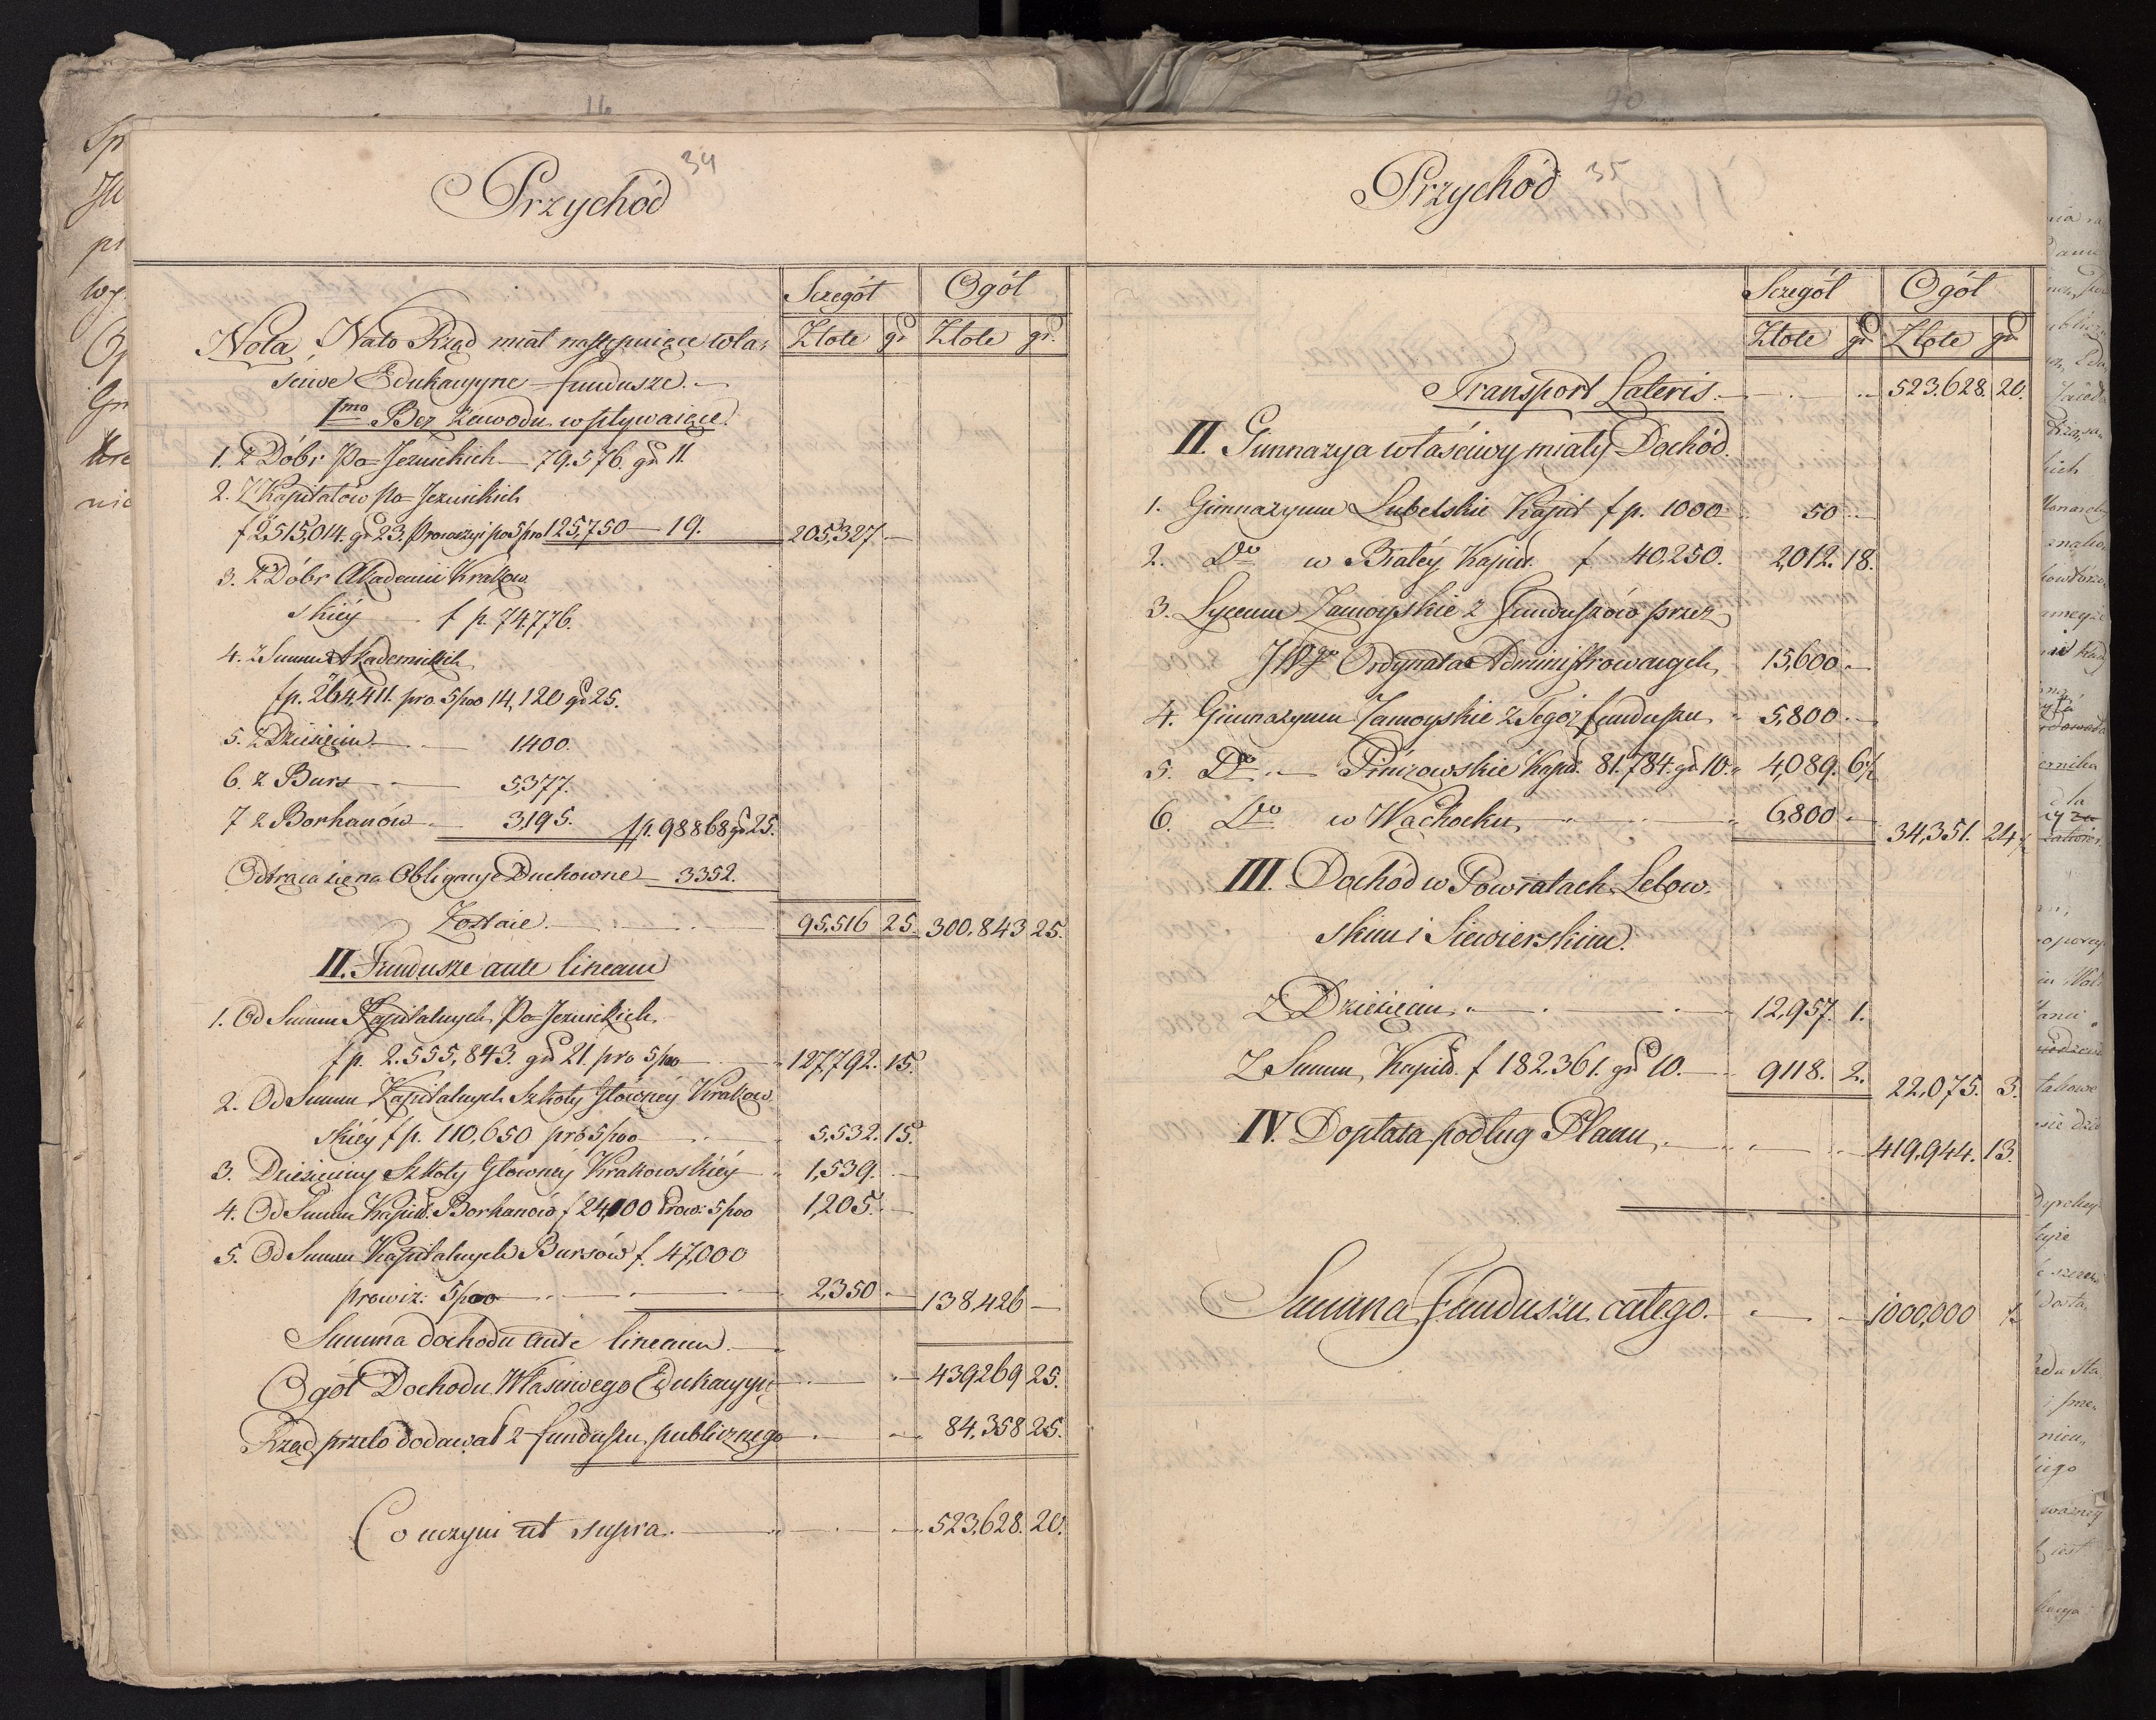 16
34
Przychód
Sczegół Ogół
Złote gr Złote gr.
Nota, Nato Rząd miał następuiące wła:
sciwe Edukacyyne fundusze.
Imo Bez zawodu wpływaiące.
1. Z Dóbr Po-Jezuickich — 79.576. gr 11.
2. Z Kapitałów Po-Jezuickich
f 2,515,014. gr 23. Prowizyi po 5 pro 125,750 — 19. 205,327 —
3. Z Dóbr Akademii Krakow
skiéy — f p. 74.776.
4. z Summ Akademickich
fp. 264,411. pro 5poo 14,120 gr 25.
5. z Dziesięcin — 1400.
6. z Burs — 5,377.
7 z Borkanów — 3,195. fp. 98868 gr 25.
Odtrąca się na Obligacye Duchowne — 3352.
Zostaie. 95,516 25. 300,843 25.
II. Fundusze ante lineam
1. Od Summ Kapitalnych Po-Jezuickich
fp. 2.555,843. gr 21. pro 5poo 127,792. 15.
2. Od Summ Kapitalnych Szkoły Głównéy Krakow
skiéy fp. 110,650 pro 5poo 5,532. 15.
3. Dziesięciny Szkoły Głównéy Krakowskiéy 1,539. —
4. Od Summ Kapit. Borkanów f 24,100 Prow: 5poo 1,205. —
5. Od Summ Kapitalnych Bursów f. 47,000
prowiz: 5poo 2,350 — 138,426 —
Summa dochodu ante lineam —
Ogół Dochodu Właściwego Edukacyy: 439269 25.
Rząd przeto dodawał z funduszu publicznego 84,358 25.
Co uczyni ut supra. 523,628. 20.
90
35
Przychód
Sczegół Ogół
Złote gr Złote gr
Transport Lateris. 523.628. 20.
II. Gimnazya właściwy miały Dochód.
1. Gimnazyum Lubelskie Kapit fp. 1000. 50 —
2. Do w Białéy Kapit. f 40,250. 2,012. 18.
3. Lyceum Zamoyskie z Funduszów przez
JWgo Ordynata Administrowanych 15,600 —
4. Gimnazyum Zamoyskie z Tegoż funduszu 5,800 —
5. Do Pinczowskie Kapit. 81.784. gr 10. 4,089. 6½
6. Do w Wąchocku 6,800 — 34,351. 24½
III. Dochód w Powiatach Lelow.
skim i Siewierskim.
Z Dziesięcin 12,957. 1.
Z Summ, Kapit. f 182.361. gr 10. 9118. 2. 22,075. 3.
IV. Dopłata podług Planu, 419,944. 13.
Summa Funduszu całego. 1000,000